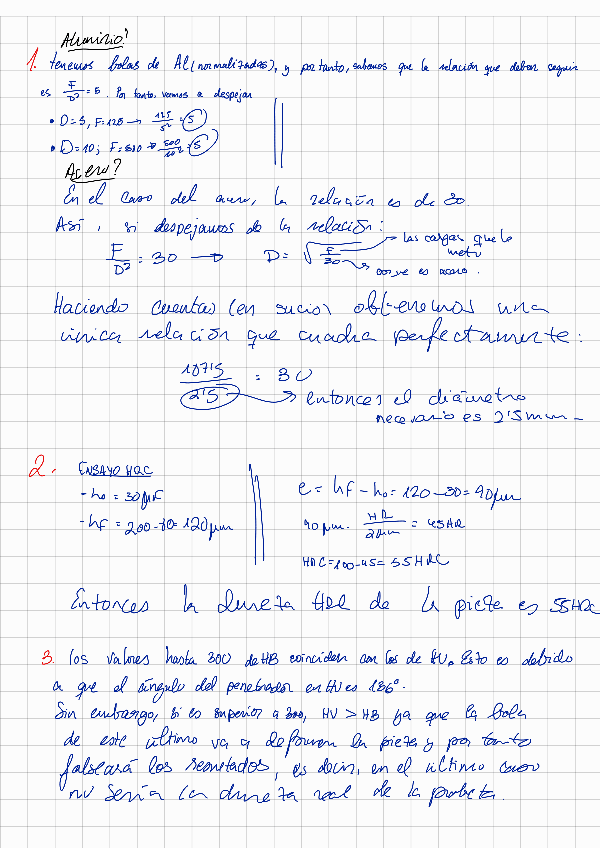 Aluminio?
1. tenemos bolas de Al (normalizadas), y por tanto, sabemos que la relación que deben seguir
es F/D² = 5. Por tanto, vamos a despejar
• D=5, F=125 → 125/5² = 5
• D=10; F=500 → 500/10² = 5
Acero?
En el caso del acero, la relación es de 30
Así, si despejamos de la relación:
F/D² = 30 → D = √(F/30) → las cargas que la
metu
→ porque es acero.
Haciendo cuentas (en sucio) obtenemos una
única relación que cuadra perfectamente:
187'5/2'5 = 30
→ entonces el diámetro
necesario es 2'5mm -
2. ENSAYO HRC
- h₀ = 30 μm
- hf = 200-80= 120μm
e = hf - h₀ = 120 - 30 = 90μm
90 μm · HR/2μm = 45HR
HRC = 100-45 = 55HRC
Entonces la dureza HRC de la pieza es 55HRC
3. los valores hasta 300 de HB coinciden con los de HV. Esto es debido
a que el ángulo del penetrador en HV es 136°.
Sin embargo, si es superior a 300, HV > HB ya que la bola
de este último va a deformar la pieza y por tanto
falseará los resultados, es decir, en el último caso
no sería la dureza real de la probeta.